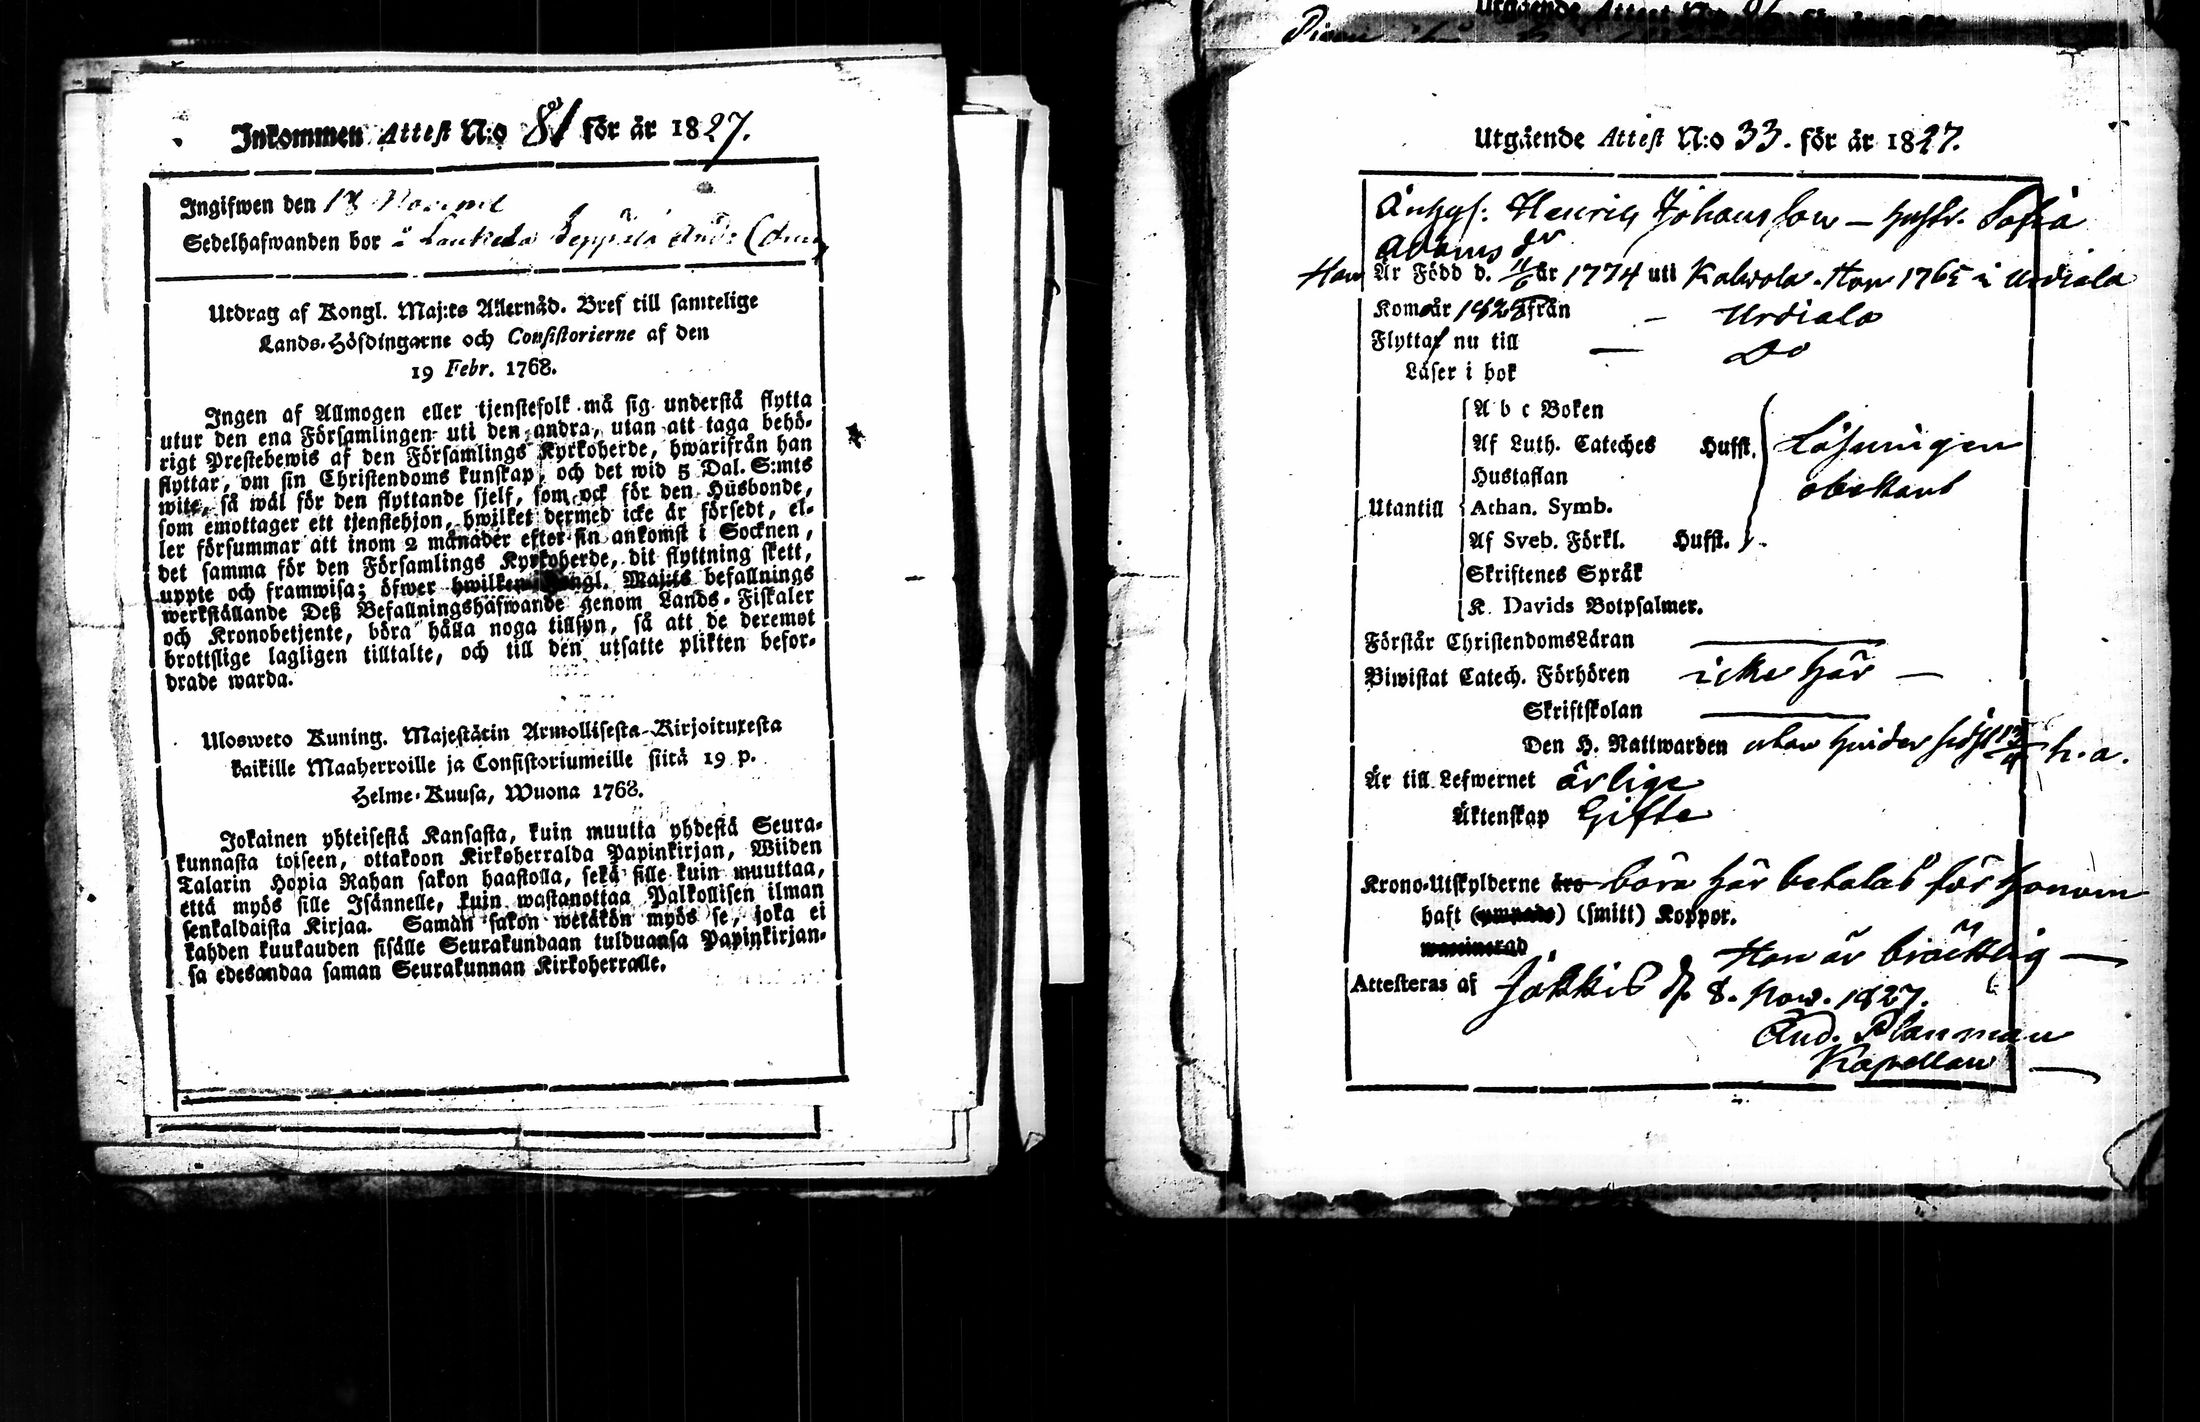 Inkommen Attest N:o 81 för år 1827.
Ingifwen den 18 Novemb
Sedelhafwanden bor å Laukela Seppälä
Utdrag af Kongl. Maj:ts Allernåd. Bref till samtelige
Lands-Höfdingarne och Consistorierne af den
19 Febr. 1768.
Ingen af Allmogen eller tjenstefolk må sig understå flytta
utur den ena Församlingen uti den andra, utan att taga behö-
rigt Prestebewis af den Församlings Kyrkoherde, hwarifrån han
flyttar, om sin Christendoms kunskap, och det wid 5 Dal. S:mts
wite, så wäl för den flyttande sjelf, som ock för den Husbonde,
som emottager ett tjenstehjon, hwilket dermed icke är försedt, el-
ler försummar att inom 2 månader efter sin ankomst i Socknen,
det samma för den Församlings Kyrkoherde, dit flyttning skett,
uppte och framwisa; öfwer hwilken Kongl. Maj:ts befallnings
werkställande Deß Befallningshafwande genom Lands-Fiskaler
och Kronobetjente, böra hålla noga tillsyn, så att de deremot
brottslige lagligen tilltalte, och till den utsatte plikten befor-
drade warda.
Ulosweto Kuning. Majestätin Armollisesta Kirjoituxesta
kaikille Maaherroille ja Consistoriumeille siitä 19 p.
Helme-Kuusa, Wuona 1768.
Jokainen yhteisestä Kansasta, kuin muutta yhdestä Seura-
kunnasta toiseen, ottakoon Kirkoherralda Papinkirjan, Wiiden
Talarin Hopia Rahan sakon haastolla, sekä sille kuin muuttaa,
että myös sille Isännelle, kuin wastanottaa Palkollisen ilman
senkaldaista Kirjaa. Saman sakon wetäkön myös se, joka ei
kahden kuukauden sisälle Seurakundaan tulduansa Papinkirjan-
sa edesandaa saman Seurakunnan Kirkoherralle.
Utgående Attest N:o 33. för år 1827.
Henric Johansson – hustr. Sofia
Adams dr
Han Är Född d. 11/6 år 1774 uti Kalvola. Hon 1765 i Urdiala
Kom år från – Urdiala
Flytta nu till – Do
Läser i bok
A b c Boken
Af Luth. Cateches Hufst. Läsningen
Hustaflan obekant
Utantill Athan. Symb.
Af Sveb. Förkl. Hufst.
Skriftenes Språk
K. Davids Botpsalmer.
Förstår ChristendomsLäran
Biwistat Catech. Förhören icke här –
Skriftskolan
Den H. Nattwarden utan hinder sidst h. a.
Är till Lefwernet ärlige
Äktenskap Gifte
Krono-Utskylderne äro böra här betalas för honom
haft (ympade) (smitt) Koppor.
waccinerad
Han är bräcklig –
Attesteras af Jokkis d. 8. Nov. 1827.
And. Planman
Kapellan